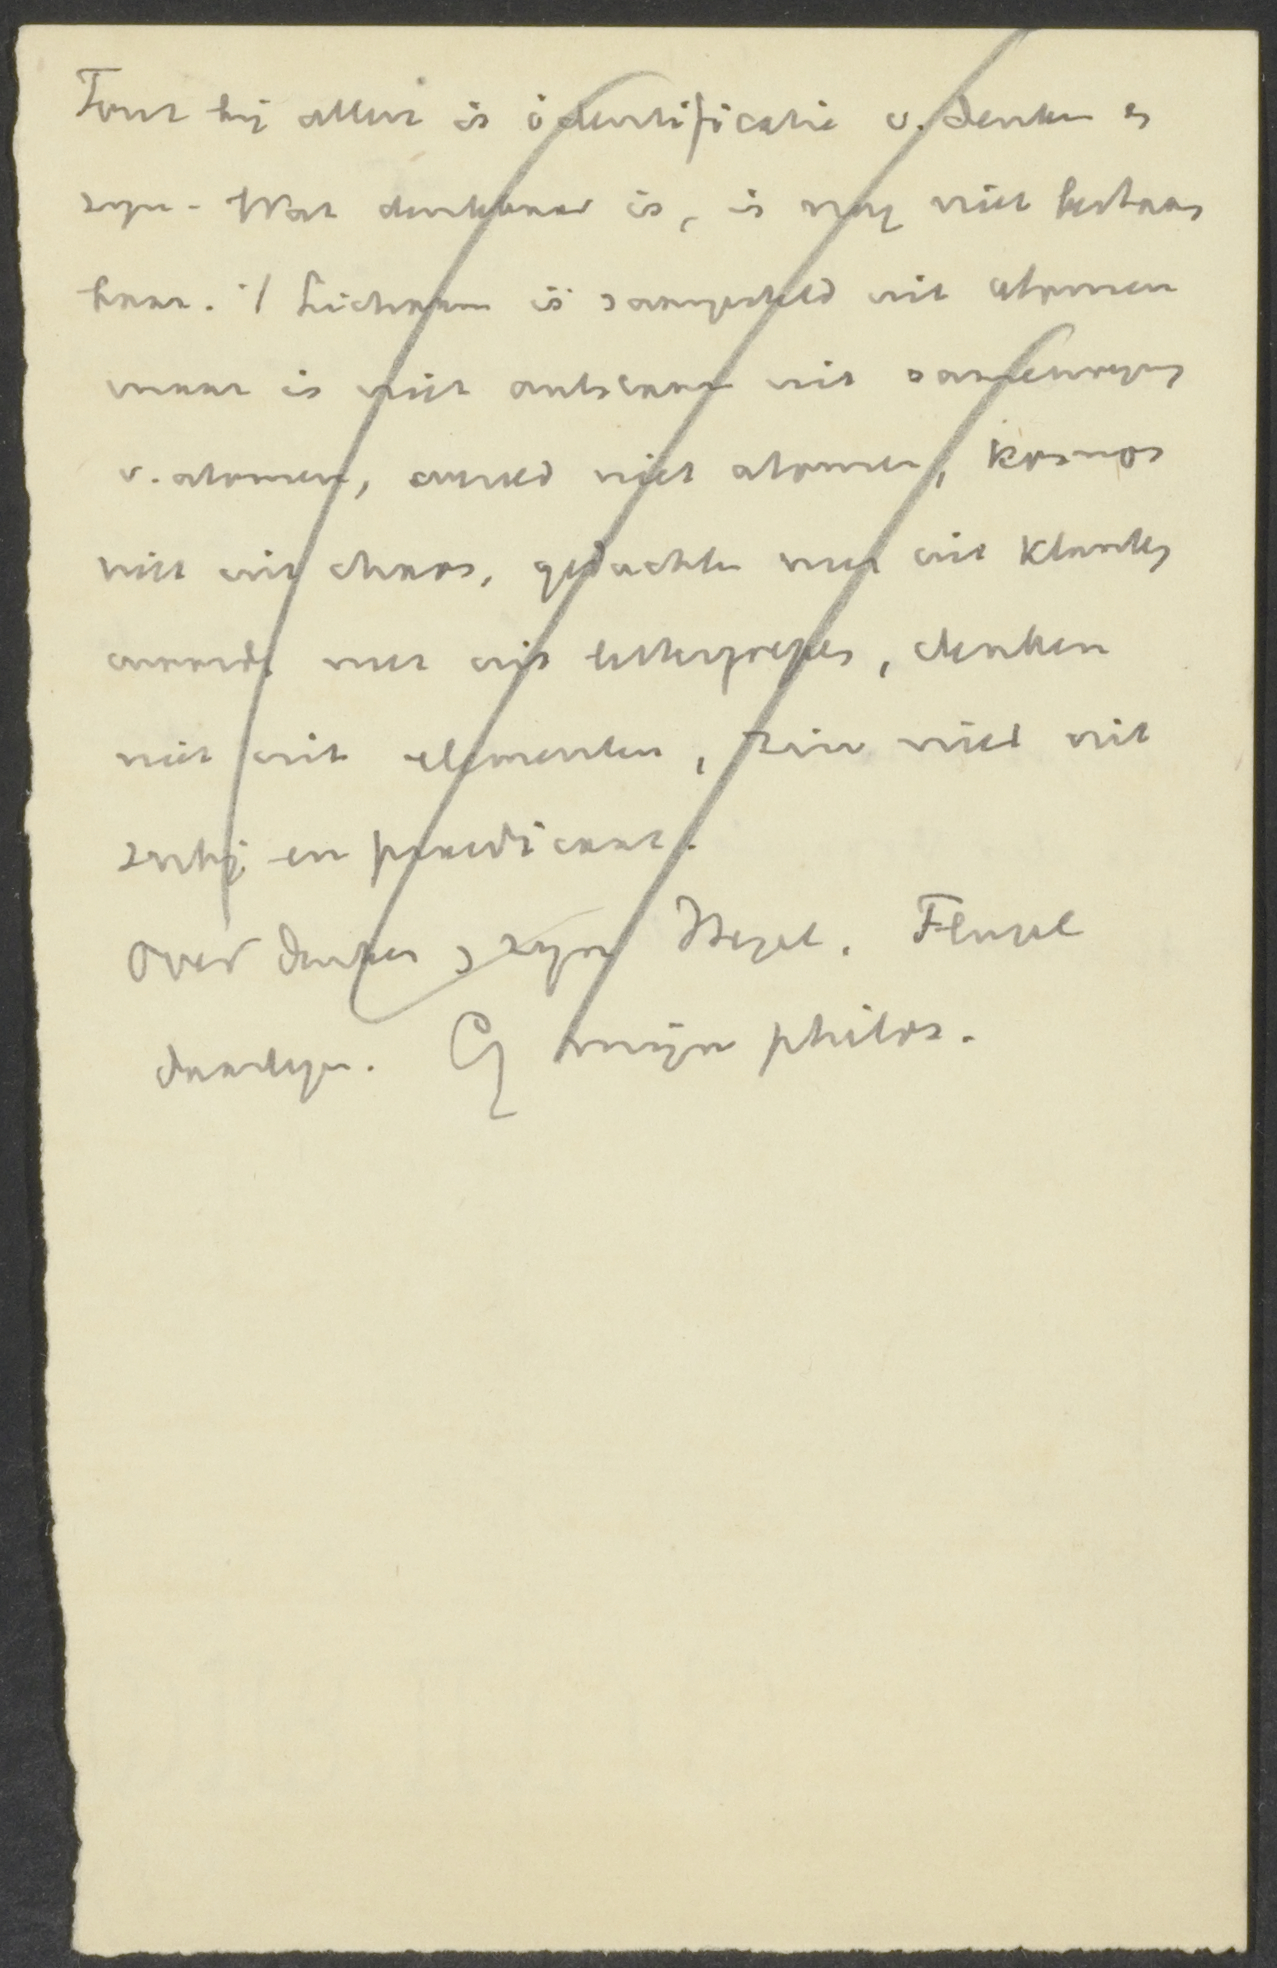 Fout bij allen is identificatie v. denken en
zijn. Wat denkbaar is, is nog niet bestaan
baar. :/ Lichaam is saamgesteld uit atomen
maar is niet ontstaan uit samenvoeging
v. atomen, wereld niet atomen, kosmos
niet uit chaos, gedachte niet uit klanken
woord niet uit lettergrepen, denken
niet uit elementen, zin niet uit
subj. en praedicaat.
Over denken en zijn Hegel. Flugel
daartegen. Cf mijn philos.